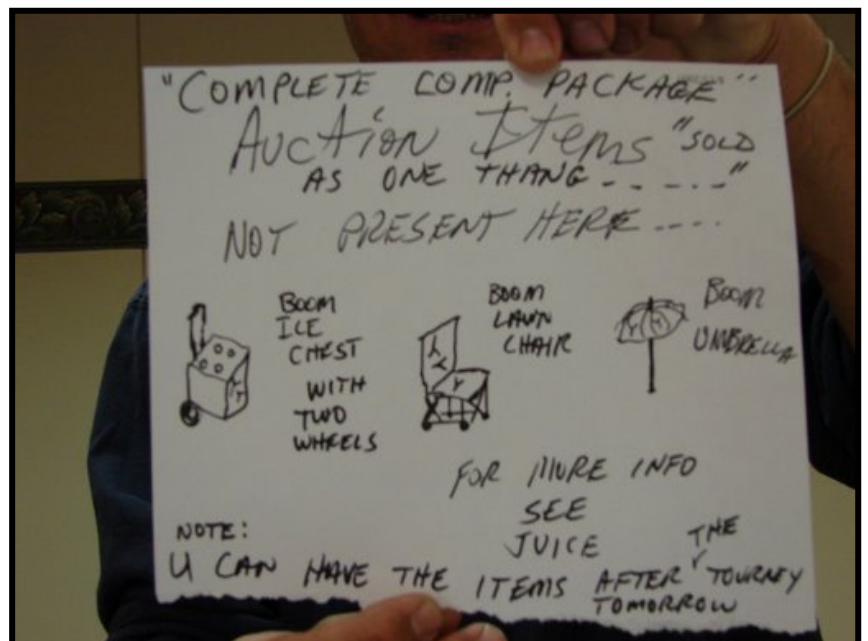 "COMPLETE COMP. PACKAGE"
AUCTION ITEMS "SOLD
AS ONE THANG - - - - - -"
NOT PRESENT HERE ----
BOOM
ICE
CHEST
WITH
TWO
WHEELS
BOOM
LAWN
CHAIR
BOOM
UMBRELLA
FOR MORE INFO
SEE
JUICE
NOTE:
U CAN HAVE THE ITEMS AFTER THE TOURNEY
TOMORROW